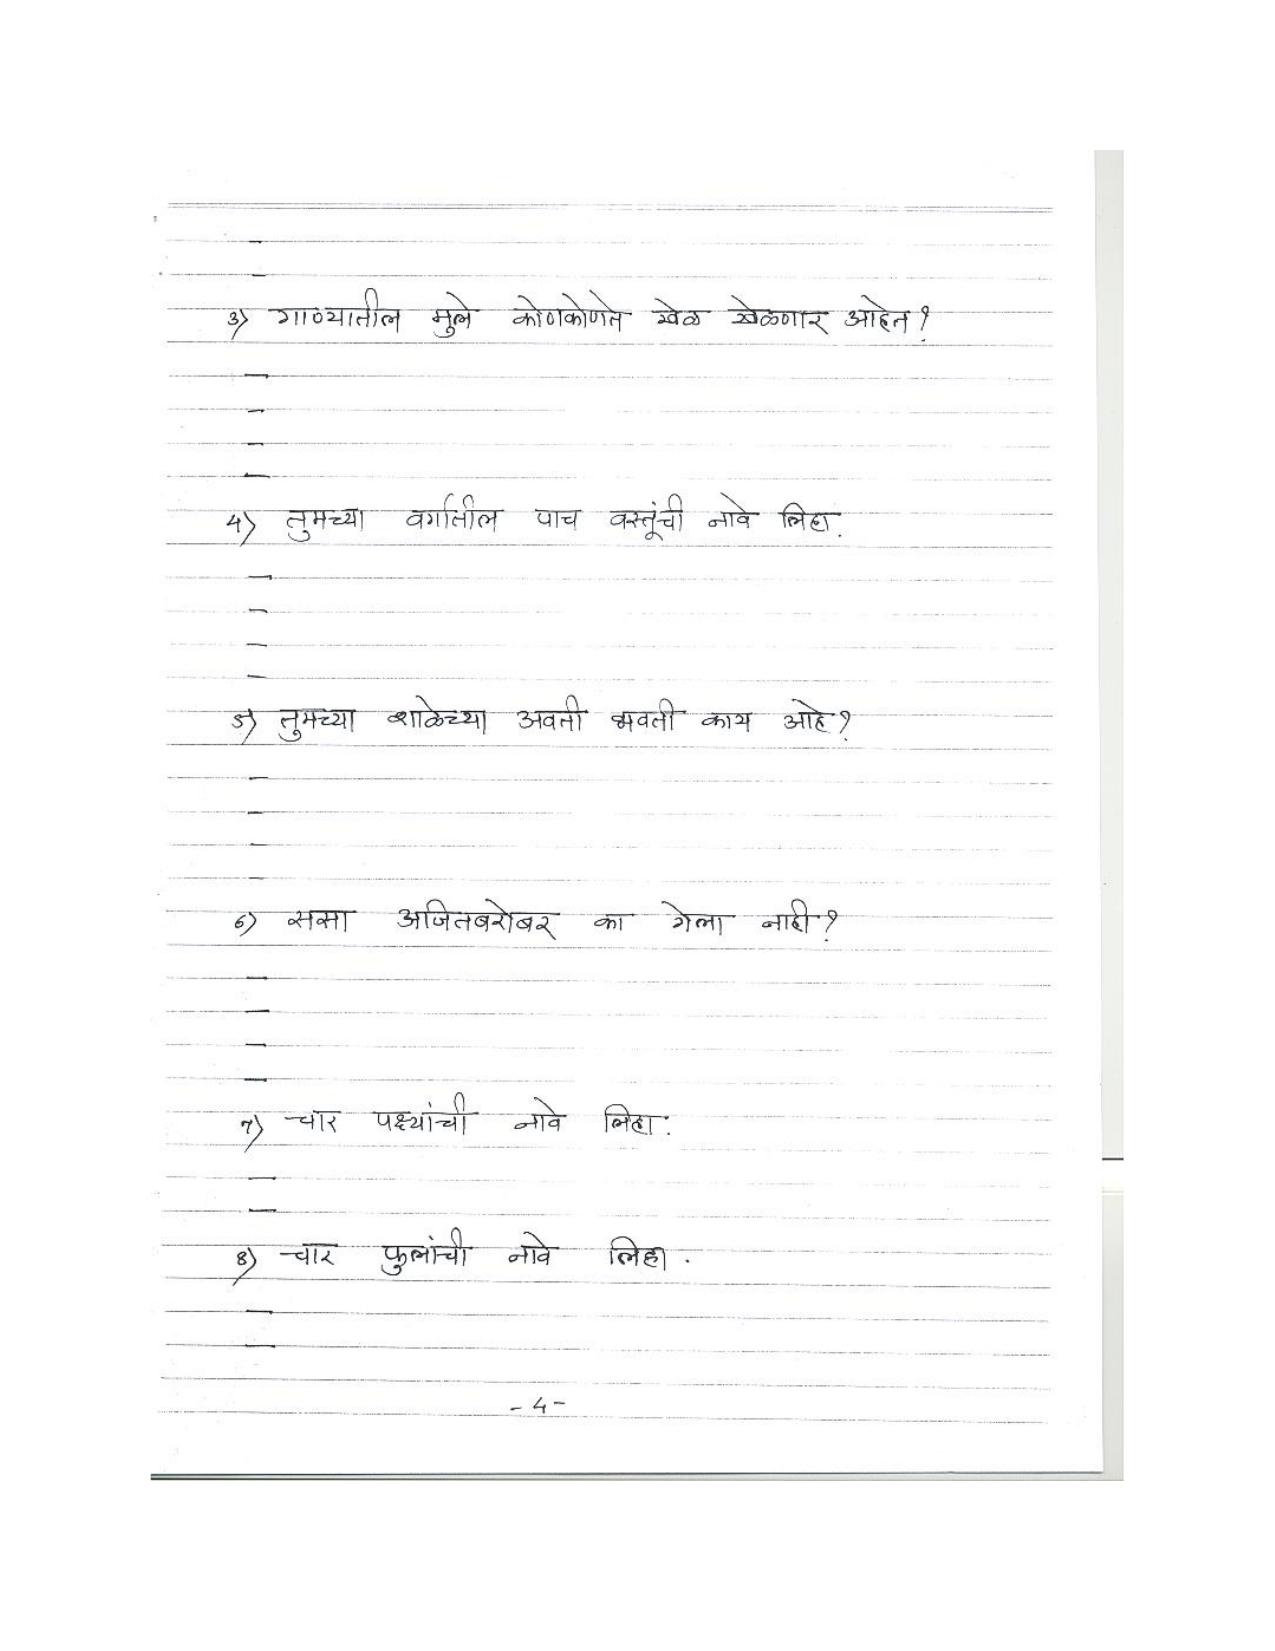 3) गाण्यातील मुले कोणकोणते खेळ खेळणार आहेत?
4) तुमच्या वर्गातील पाच वस्तूंची नावे लिहा.
5) तुमच्या शाळेच्या अवती भवती काय आहे?
6) ससा अजितबरोबर का गेला नाही?
7) चार पक्ष्यांची नावे लिहा.
8) चार फुलांची नावे लिहा.
- 4 -